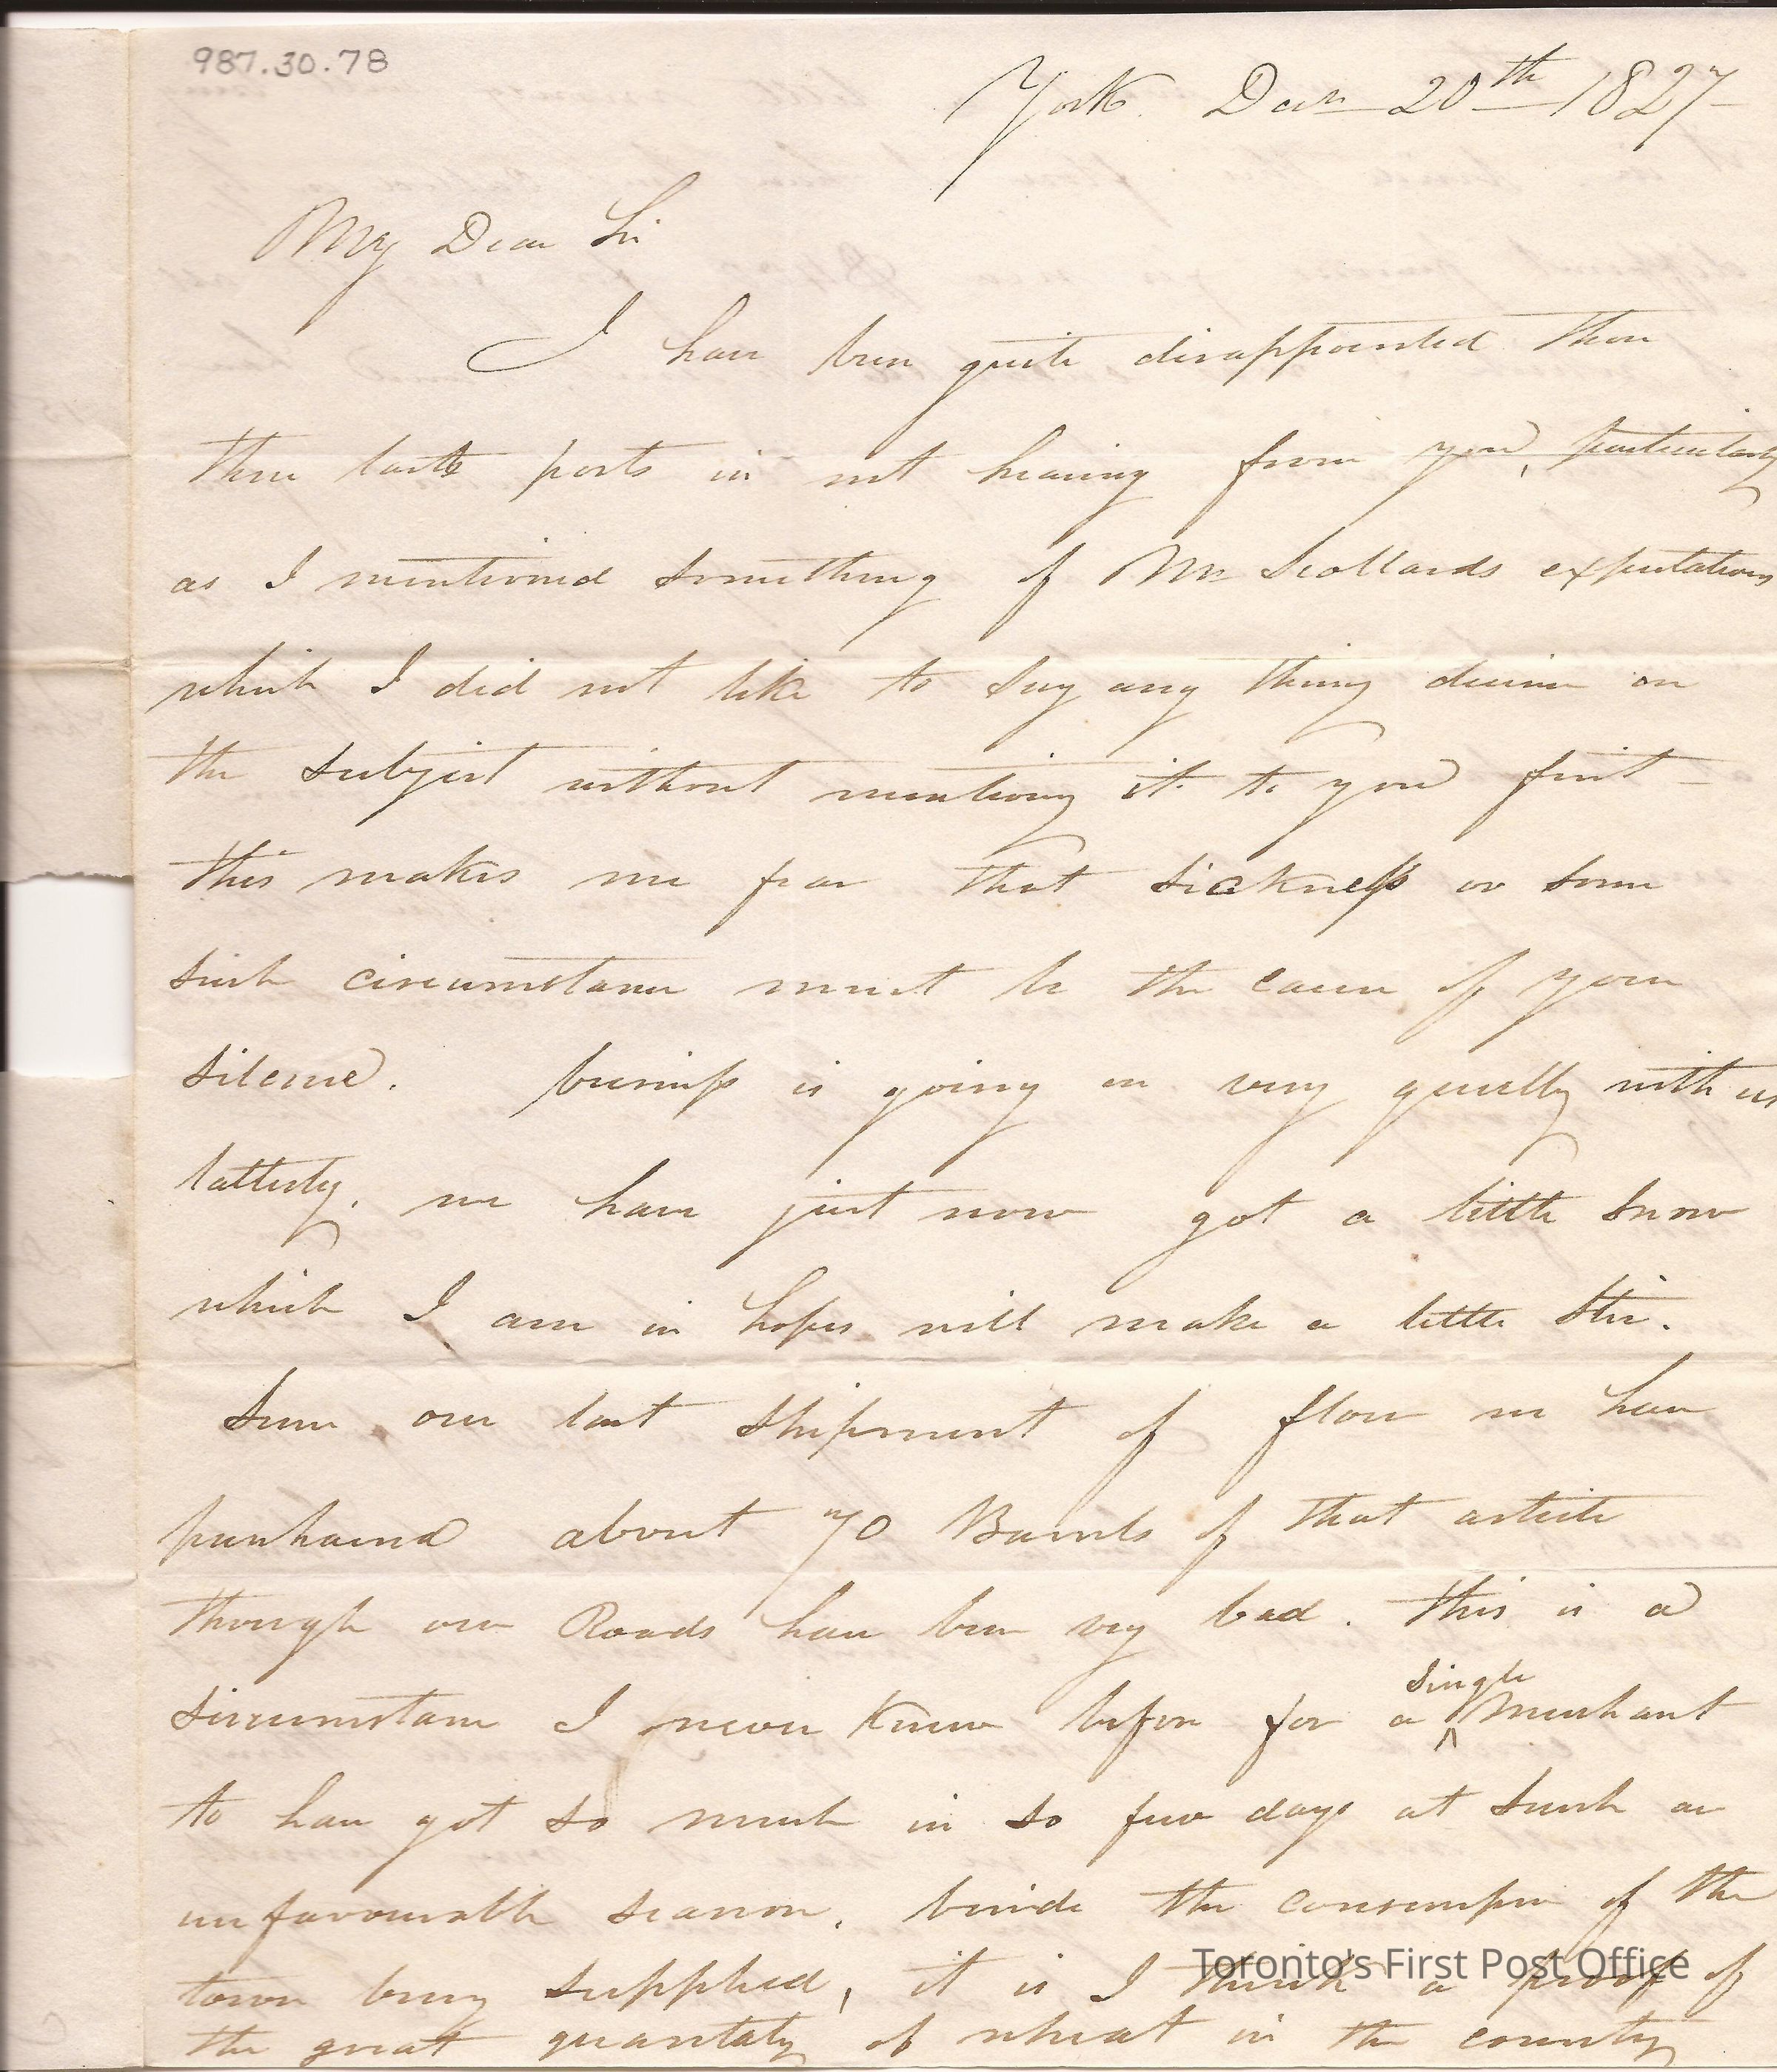 987.30.78
York Decr 20th 1827
My Dear Sir
I have been quite disappointed these
three last posts in not hearing from you, particularly
as I mentioned something of Mr Scollards expectations
which I did not like to say any thing decisive on
the subject without mentioning it to you first
this makes me fear that sickness or some
such circumstance must be the cause of your
silence. business is going on very quietly with us
latterly. we have just now got a little snow
which I am in hopes will make a little stir.
Since our last shipment of flour we have
purchased about 70 Barrels of that article
though our Roads have been very bad. this is a
sircumstance I never knew before for a single Merchant
to have got so much in so few days at such an
unfavourable season, beside the consumpn of the
town being supplied, it is I think a proof of
the great quantaty of wheat in the country
Toronto's First Post Office